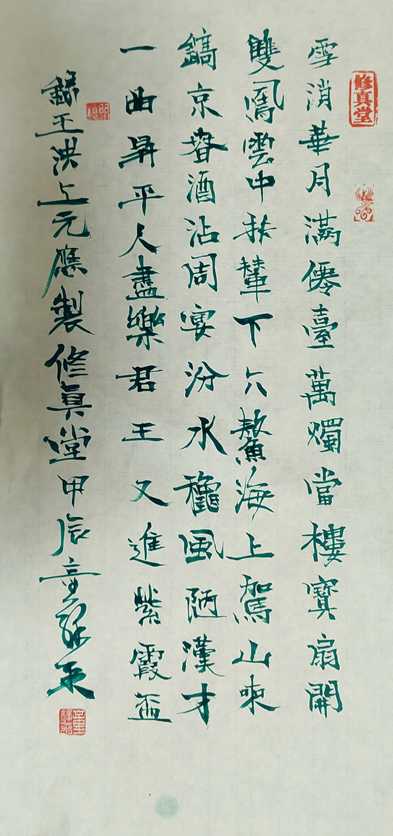 修真堂
雪消華月滿僊臺萬燭當樓寶扇開
雙鳳雲中扶輦下六鰲海上駕山來
鎬京春酒沾周宴汾水穐風陋漢才
一曲昇平人盡樂君王又進紫霞盃
錄王洪上元應製修真堂甲辰